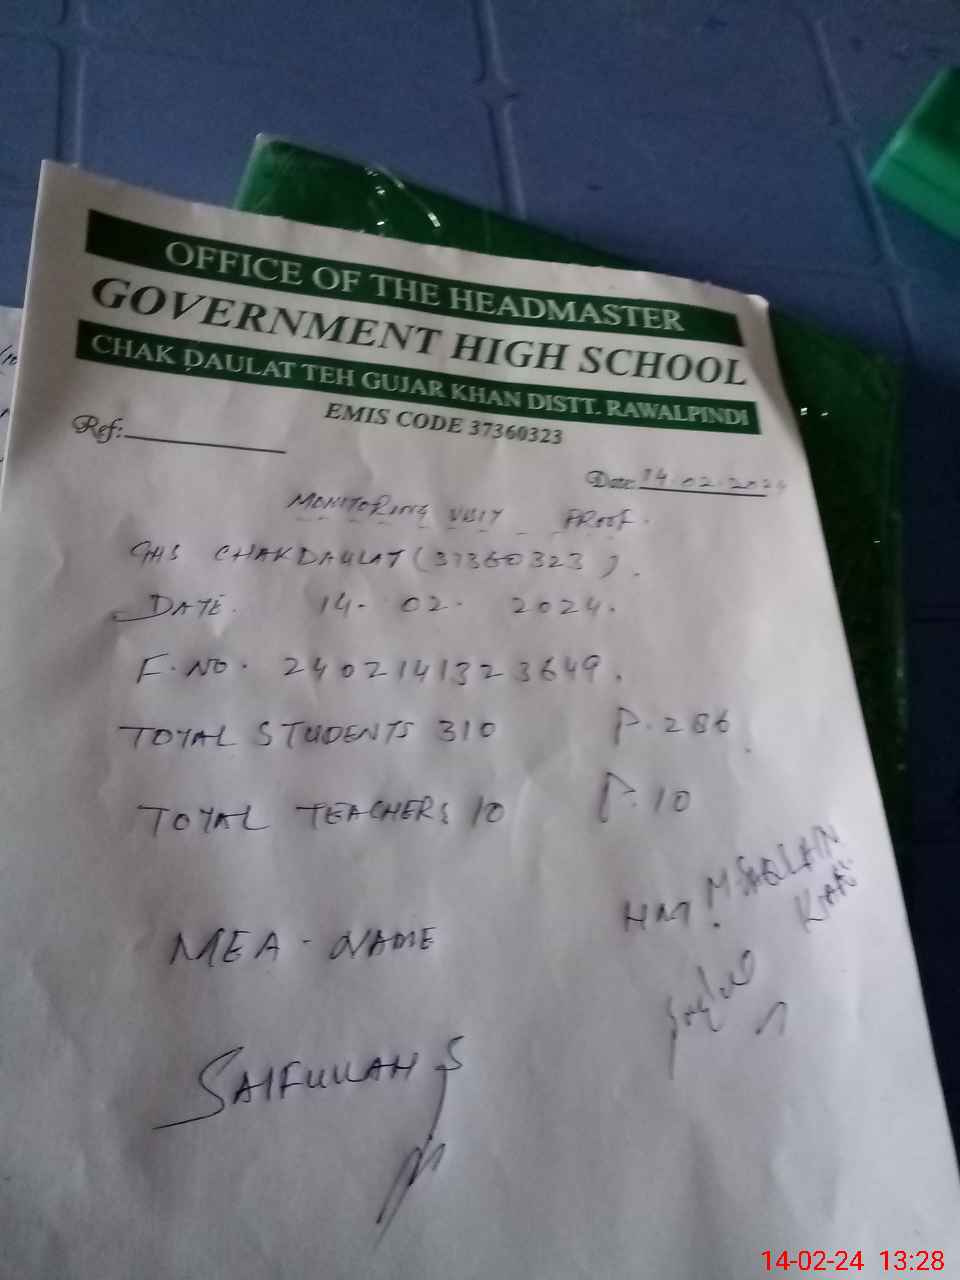 OFFICE OF THE HEADMASTER
GOVERNMENT HIGH SCHOOL
CHAK DAULAT TEH GUJAR KHAN DISTT. RAWALPINDI
EMIS CODE 37360323
Ref:
Date: 14.02.2024
MONITORING VISIT PROOF.
GHS CHAKDAULAT (37360323).
DATE. 14-02-2024.
F.NO. 2402141323649.
TOTAL STUDENTS 310 P.286
TOTAL TEACHERS 10 P.10
HM. M. SAQLAIN
KIANI
MEA - NAME
SAIFULLAH S
14-02-24 13:28